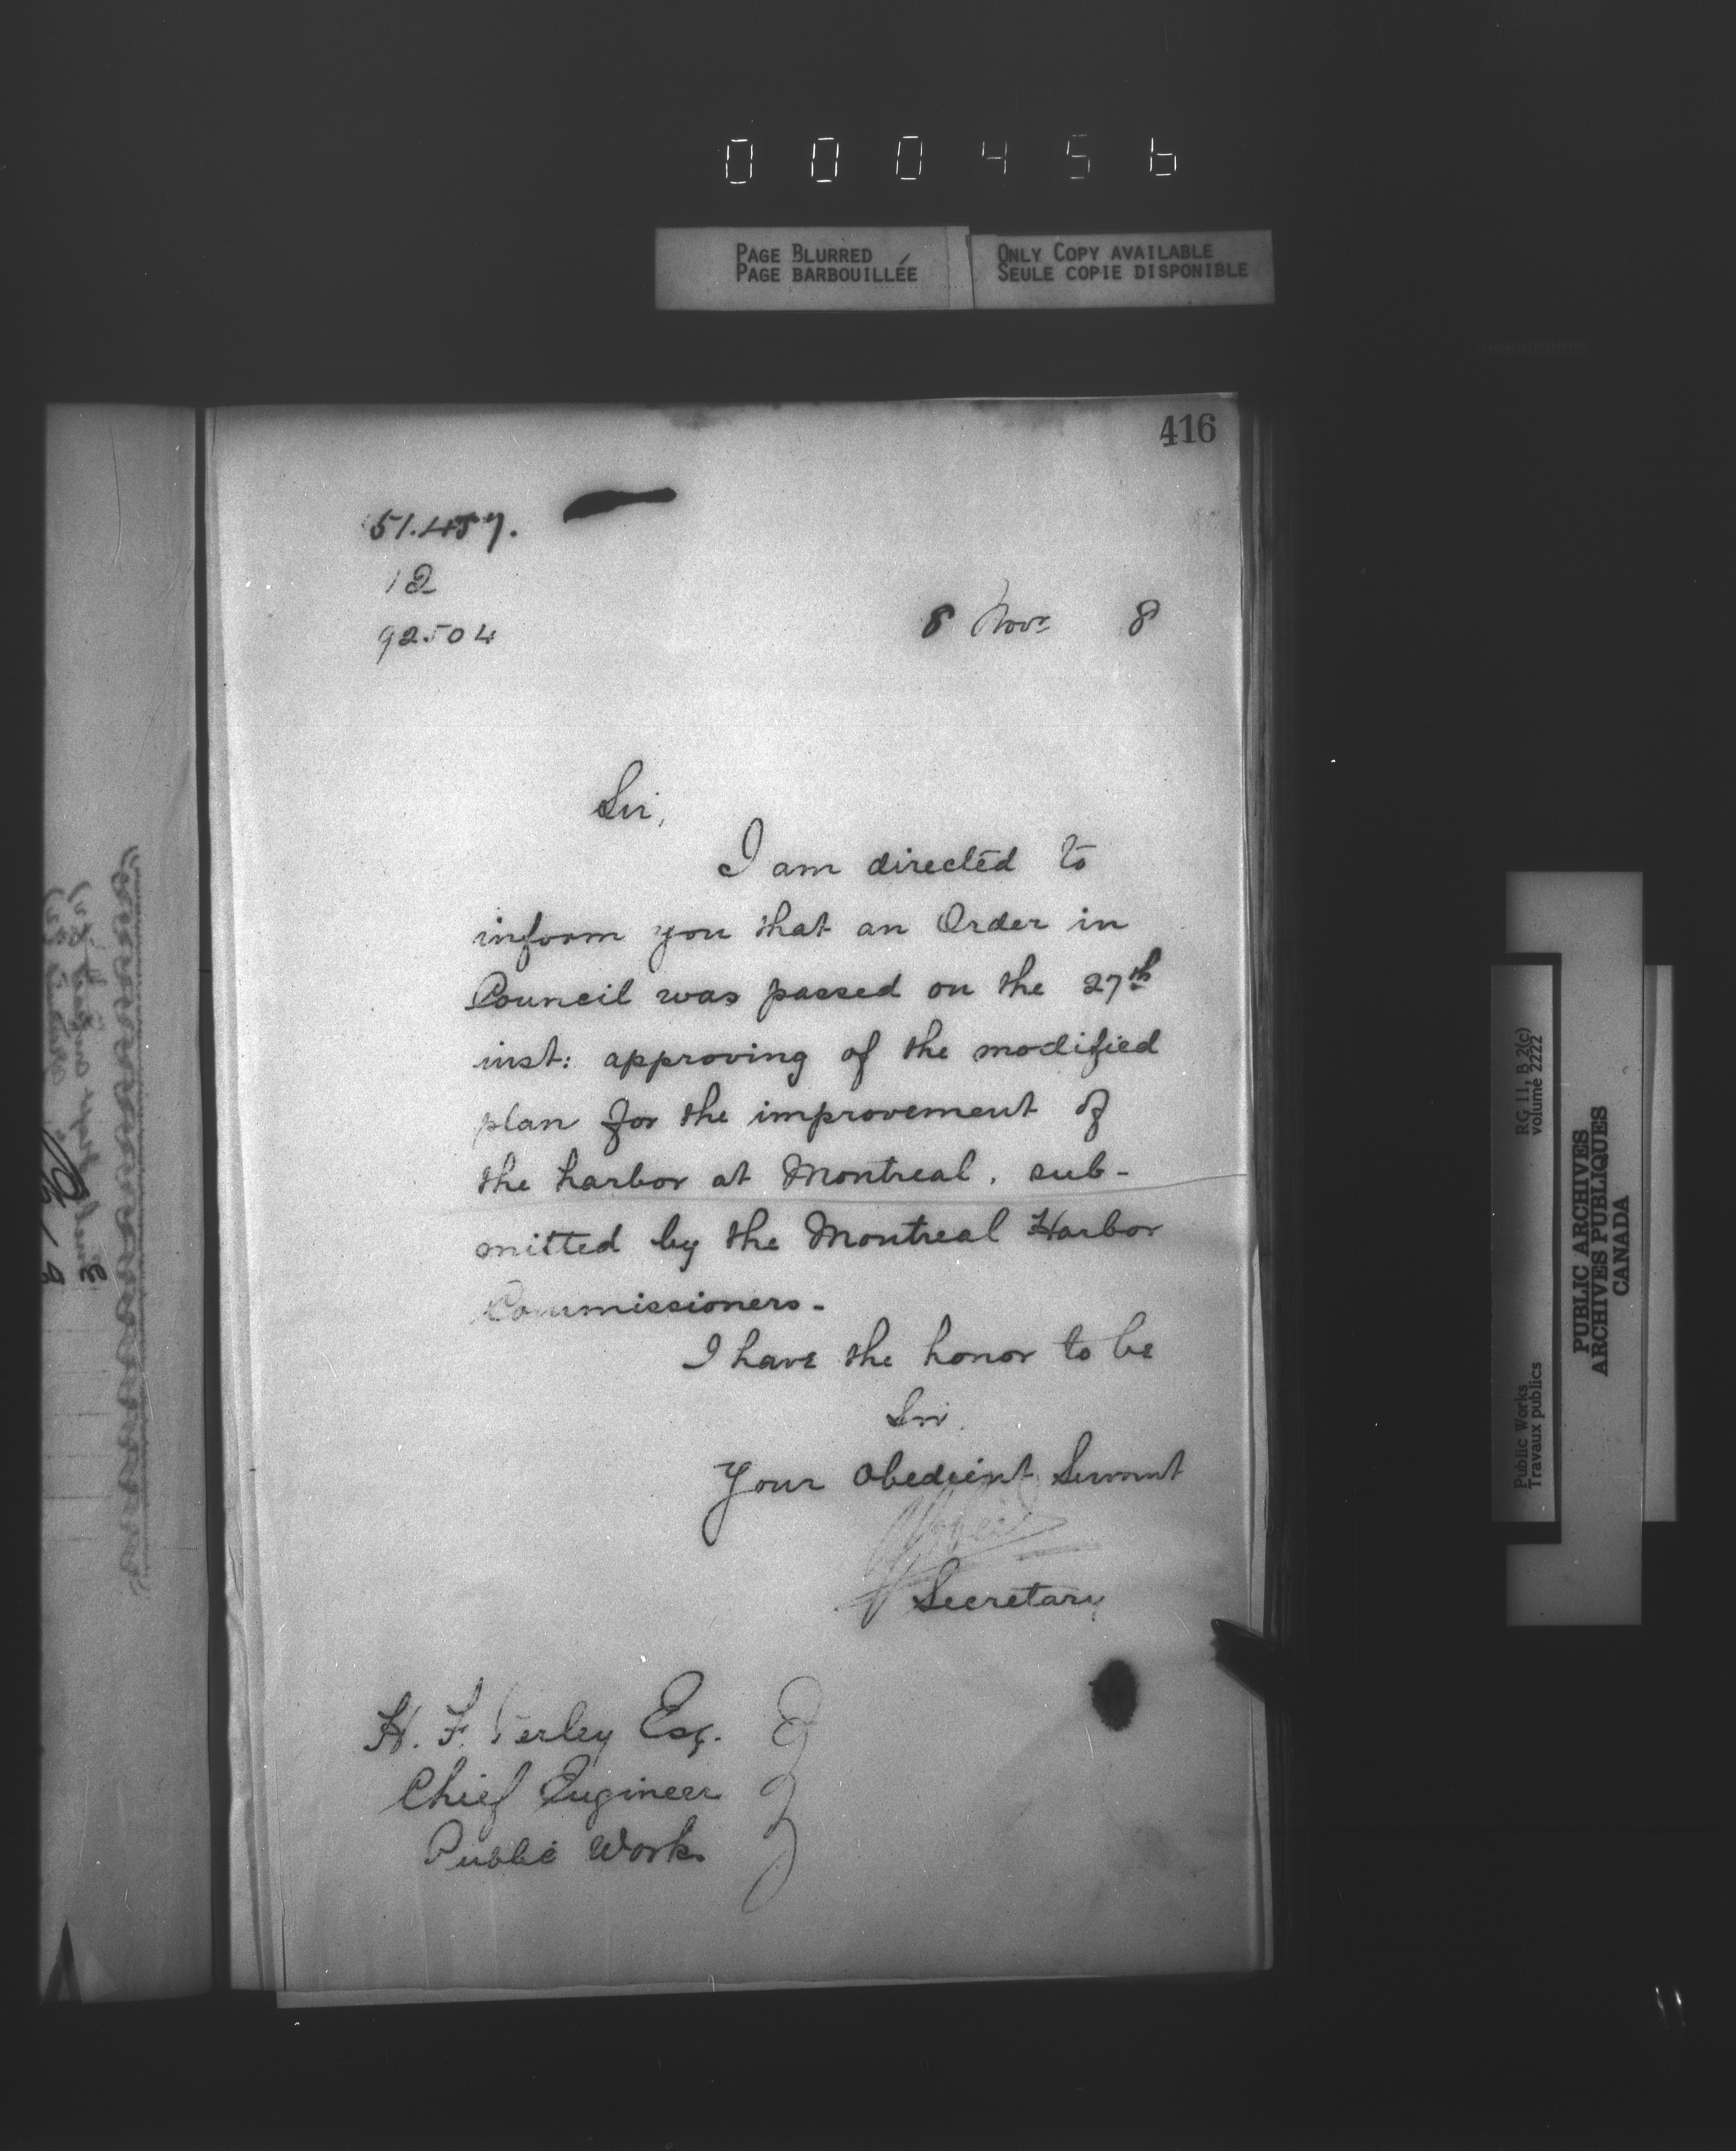 000456
PAGE BLURRED
PAGE BARBOUILLÉE
ONLY COPY AVAILABLE
SEULE COPIE DISPONIBLE
416
51.457.
12
92504
8 Novr 8
Sir,
I am directed to
inform you that an Order in
Council was passed on the 27th
inst: approving of the modified
plan for the improvement of
the harbor at Montreal, sub-
mitted by the Montreal Harbor
Commissioners.
I have the honor to be
Sir,
Your Obedient Servant
Secretary
H. F. Perley Esq.
Chief Engineer
Public Works
Public Works
Travaux publics
RG 11, B 2(c)
volume 2222
PUBLIC ARCHIVES
ARCHIVES PUBLIQUES
CANADA